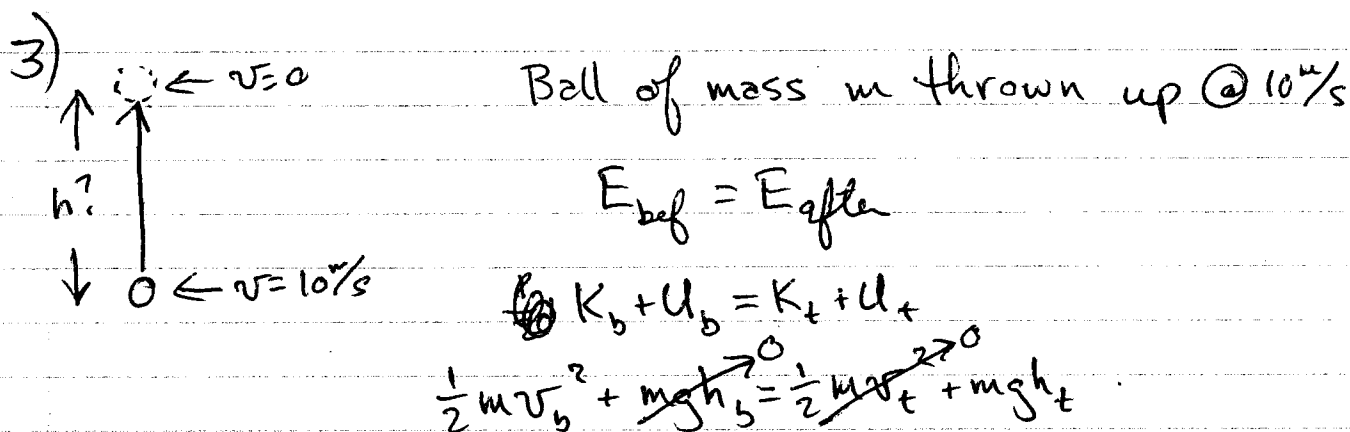 3)
← v=0
Ball of mass m thrown up @ 10 m/s
h?
E_bef = E_after
← v= 10 m/s
K_b + U_b = K_t + U_t
½ m v_b² + mgh_b → 0 = ½ m v_t² → 0 + mgh_t